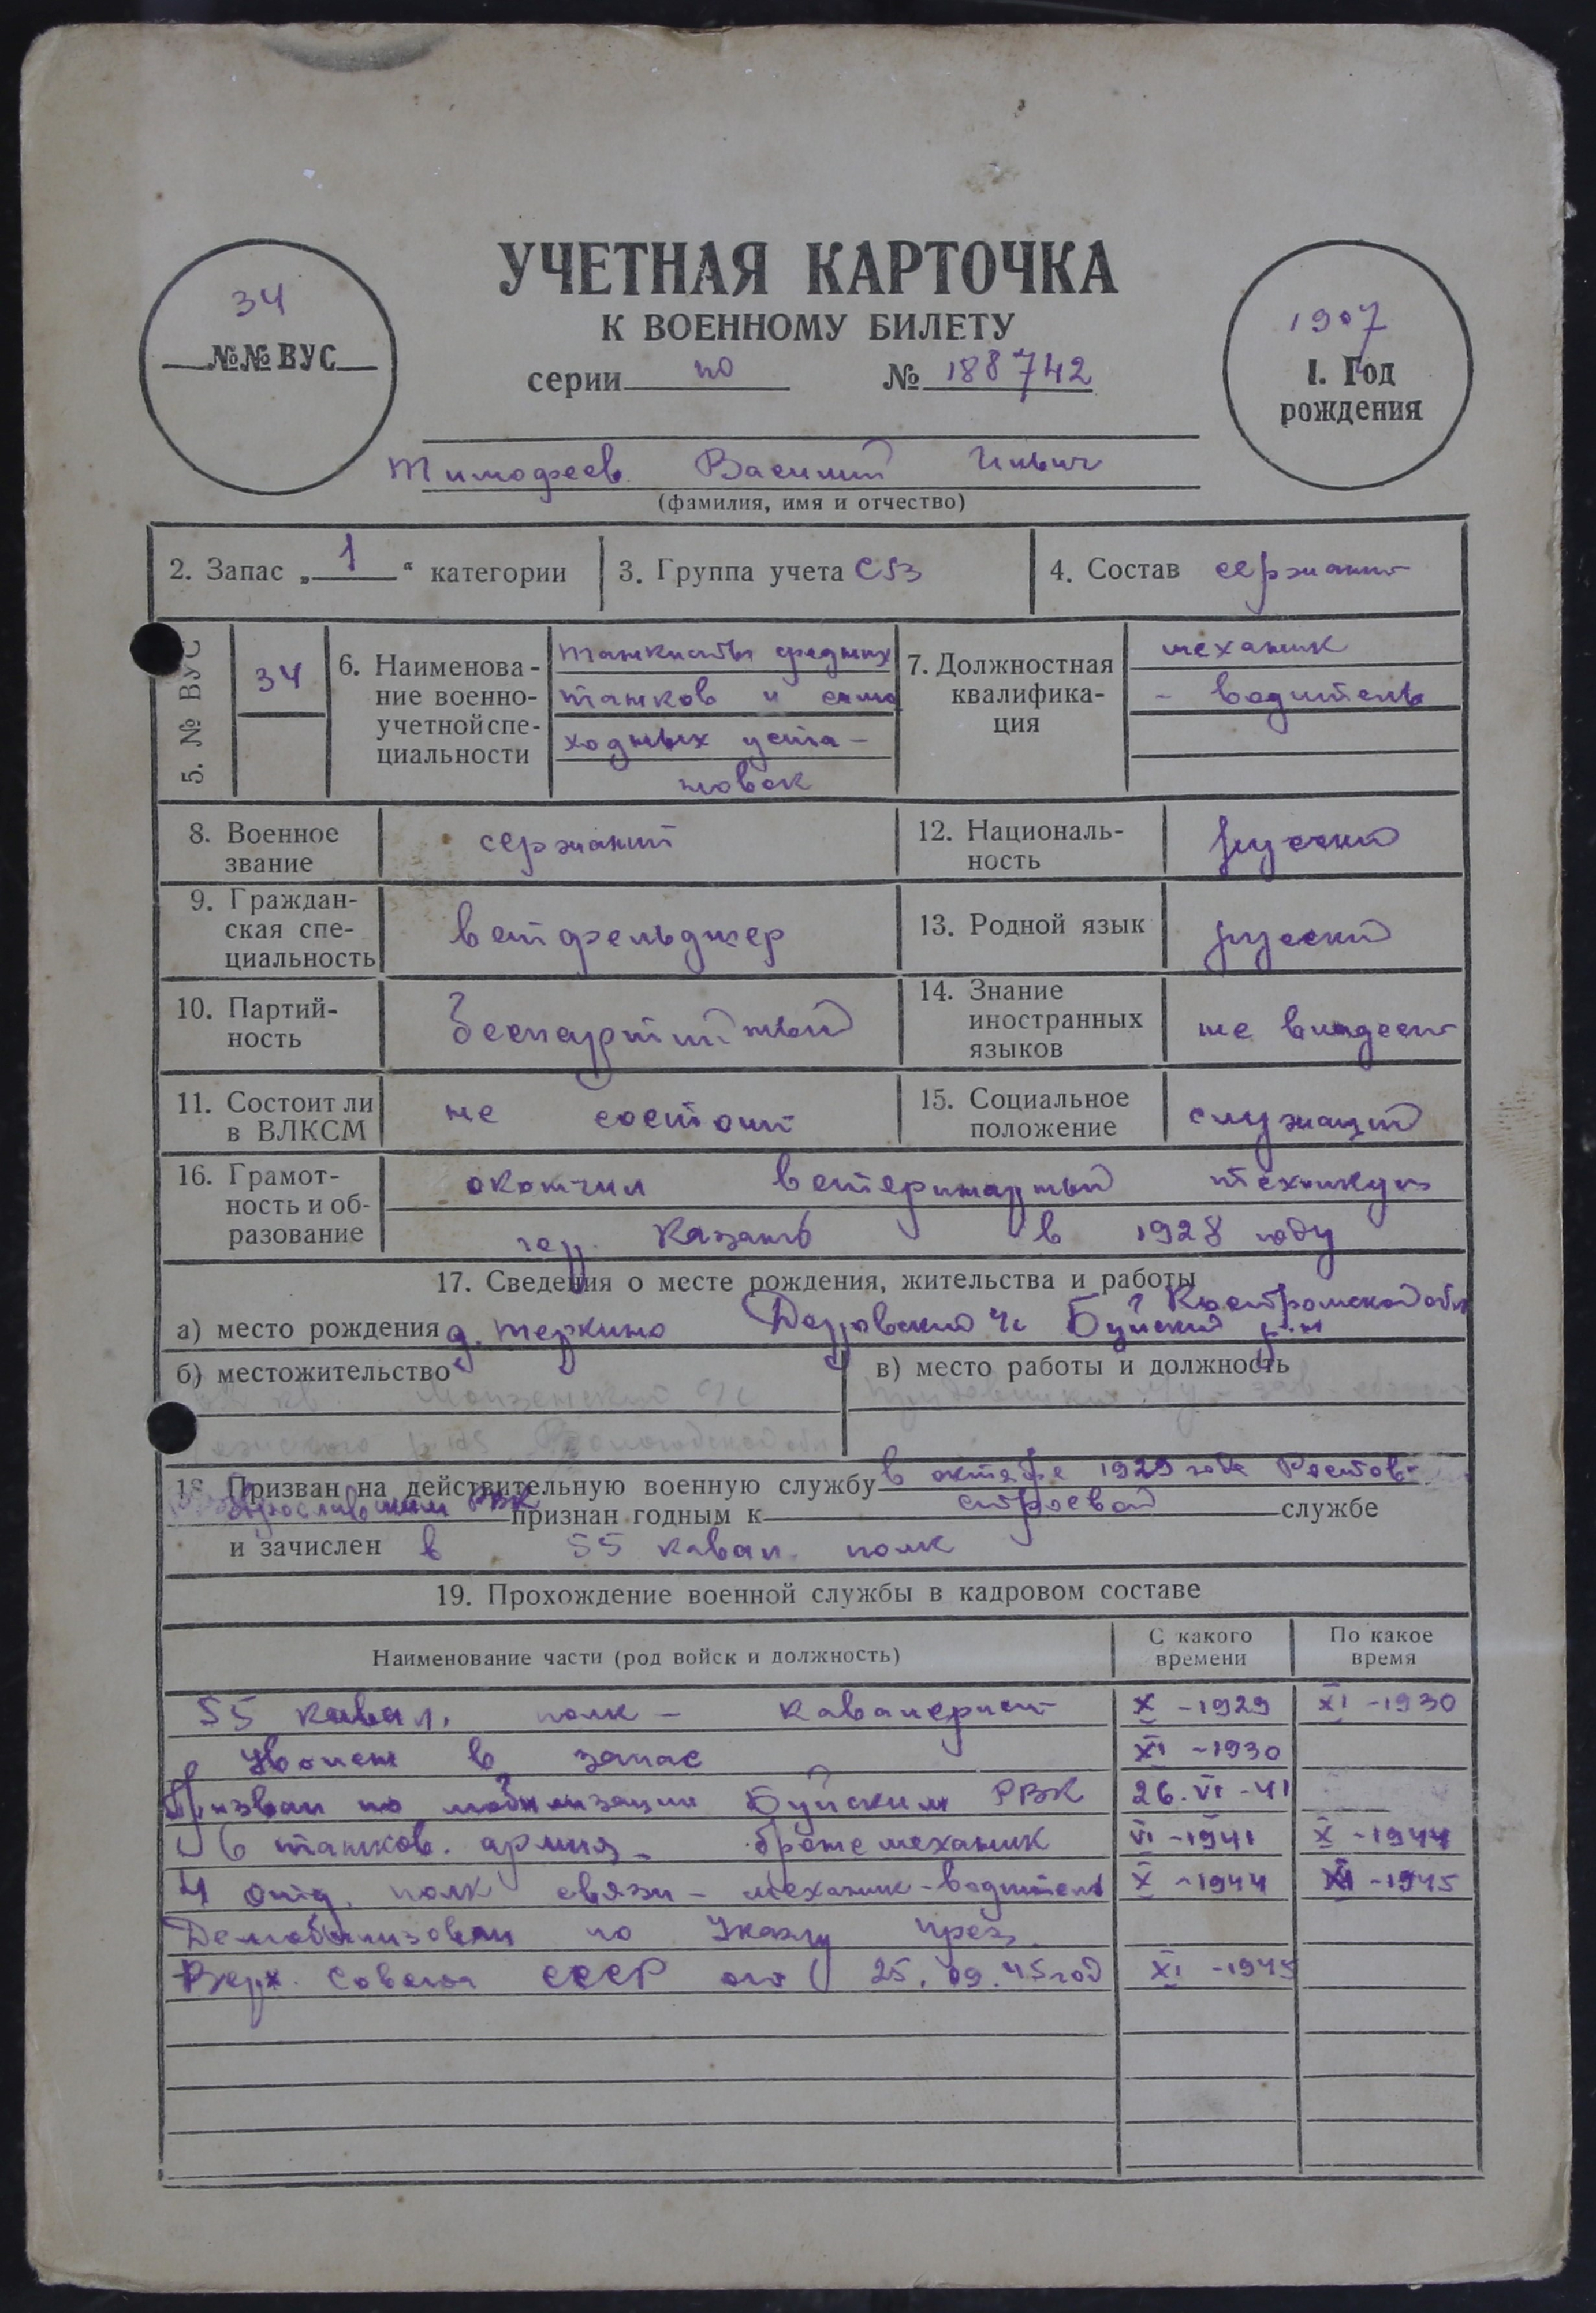 34
№№ ВУС
УЧЕТНАЯ КАРТОЧКА
К ВОЕННОМУ БИЛЕТУ
серии по № 188742
1907
1. Год
рождения
Тимофеев Василий Ильич
(фамилия, имя и отчество)
2. Запас „ 1 “ категории
3. Группа учета СБЗ
4. Состав сержант
5. № ВУС
34
6. Наименова-
ние военно-
учетной спе-
циальности
танкисты средних
танков и само
ходных уста-
новок
7. Должностная
квалифика-
ция
механик
- водитель
8. Военное
звание
сержант
12. Националь-
ность
русский
9. Граждан-
ская спе-
циальность
ветфельдшер
13. Родной язык
русский
10. Партий-
ность
беспартийный
14. Знание
иностранных
языков
не владеет
11. Состоит ли
в ВЛКСМ
не состоит
15. Социальное
положение
служащий
16. Грамот-
ность и об-
разование
окончил ветеринарный техникум
гор. Казань в 1928 году
17. Сведения о месте рождения, жительства и работы
Костромской обл
а) место рождения д. Теркино Дор Буйский р-н
б) местожительство
в) место работы и должность
18. Призван на действительную военную службу в октябре 1929 года Ростов-
Ярославским РВК признан годным к строевой службе
и зачислен в 55 кавал. полк
19. Прохождение военной службы в кадровом составе
Наименование части (род войск и должность)
С какого
времени
По какое
время
55 кавал. полк - кавалерист X -1929 XI -1930
Уволен в запас XI -1930
Призван по мобилизации Буйским РВК 26.VI-41
6 танков. армия - бронемеханик VI -1941 X -1944
4 отд. полк связи - механик-водитель X -1944 XI -1945
Демобилизован по Указу През.
Верх. Совета СССР от 25.09.45 год XI -1945